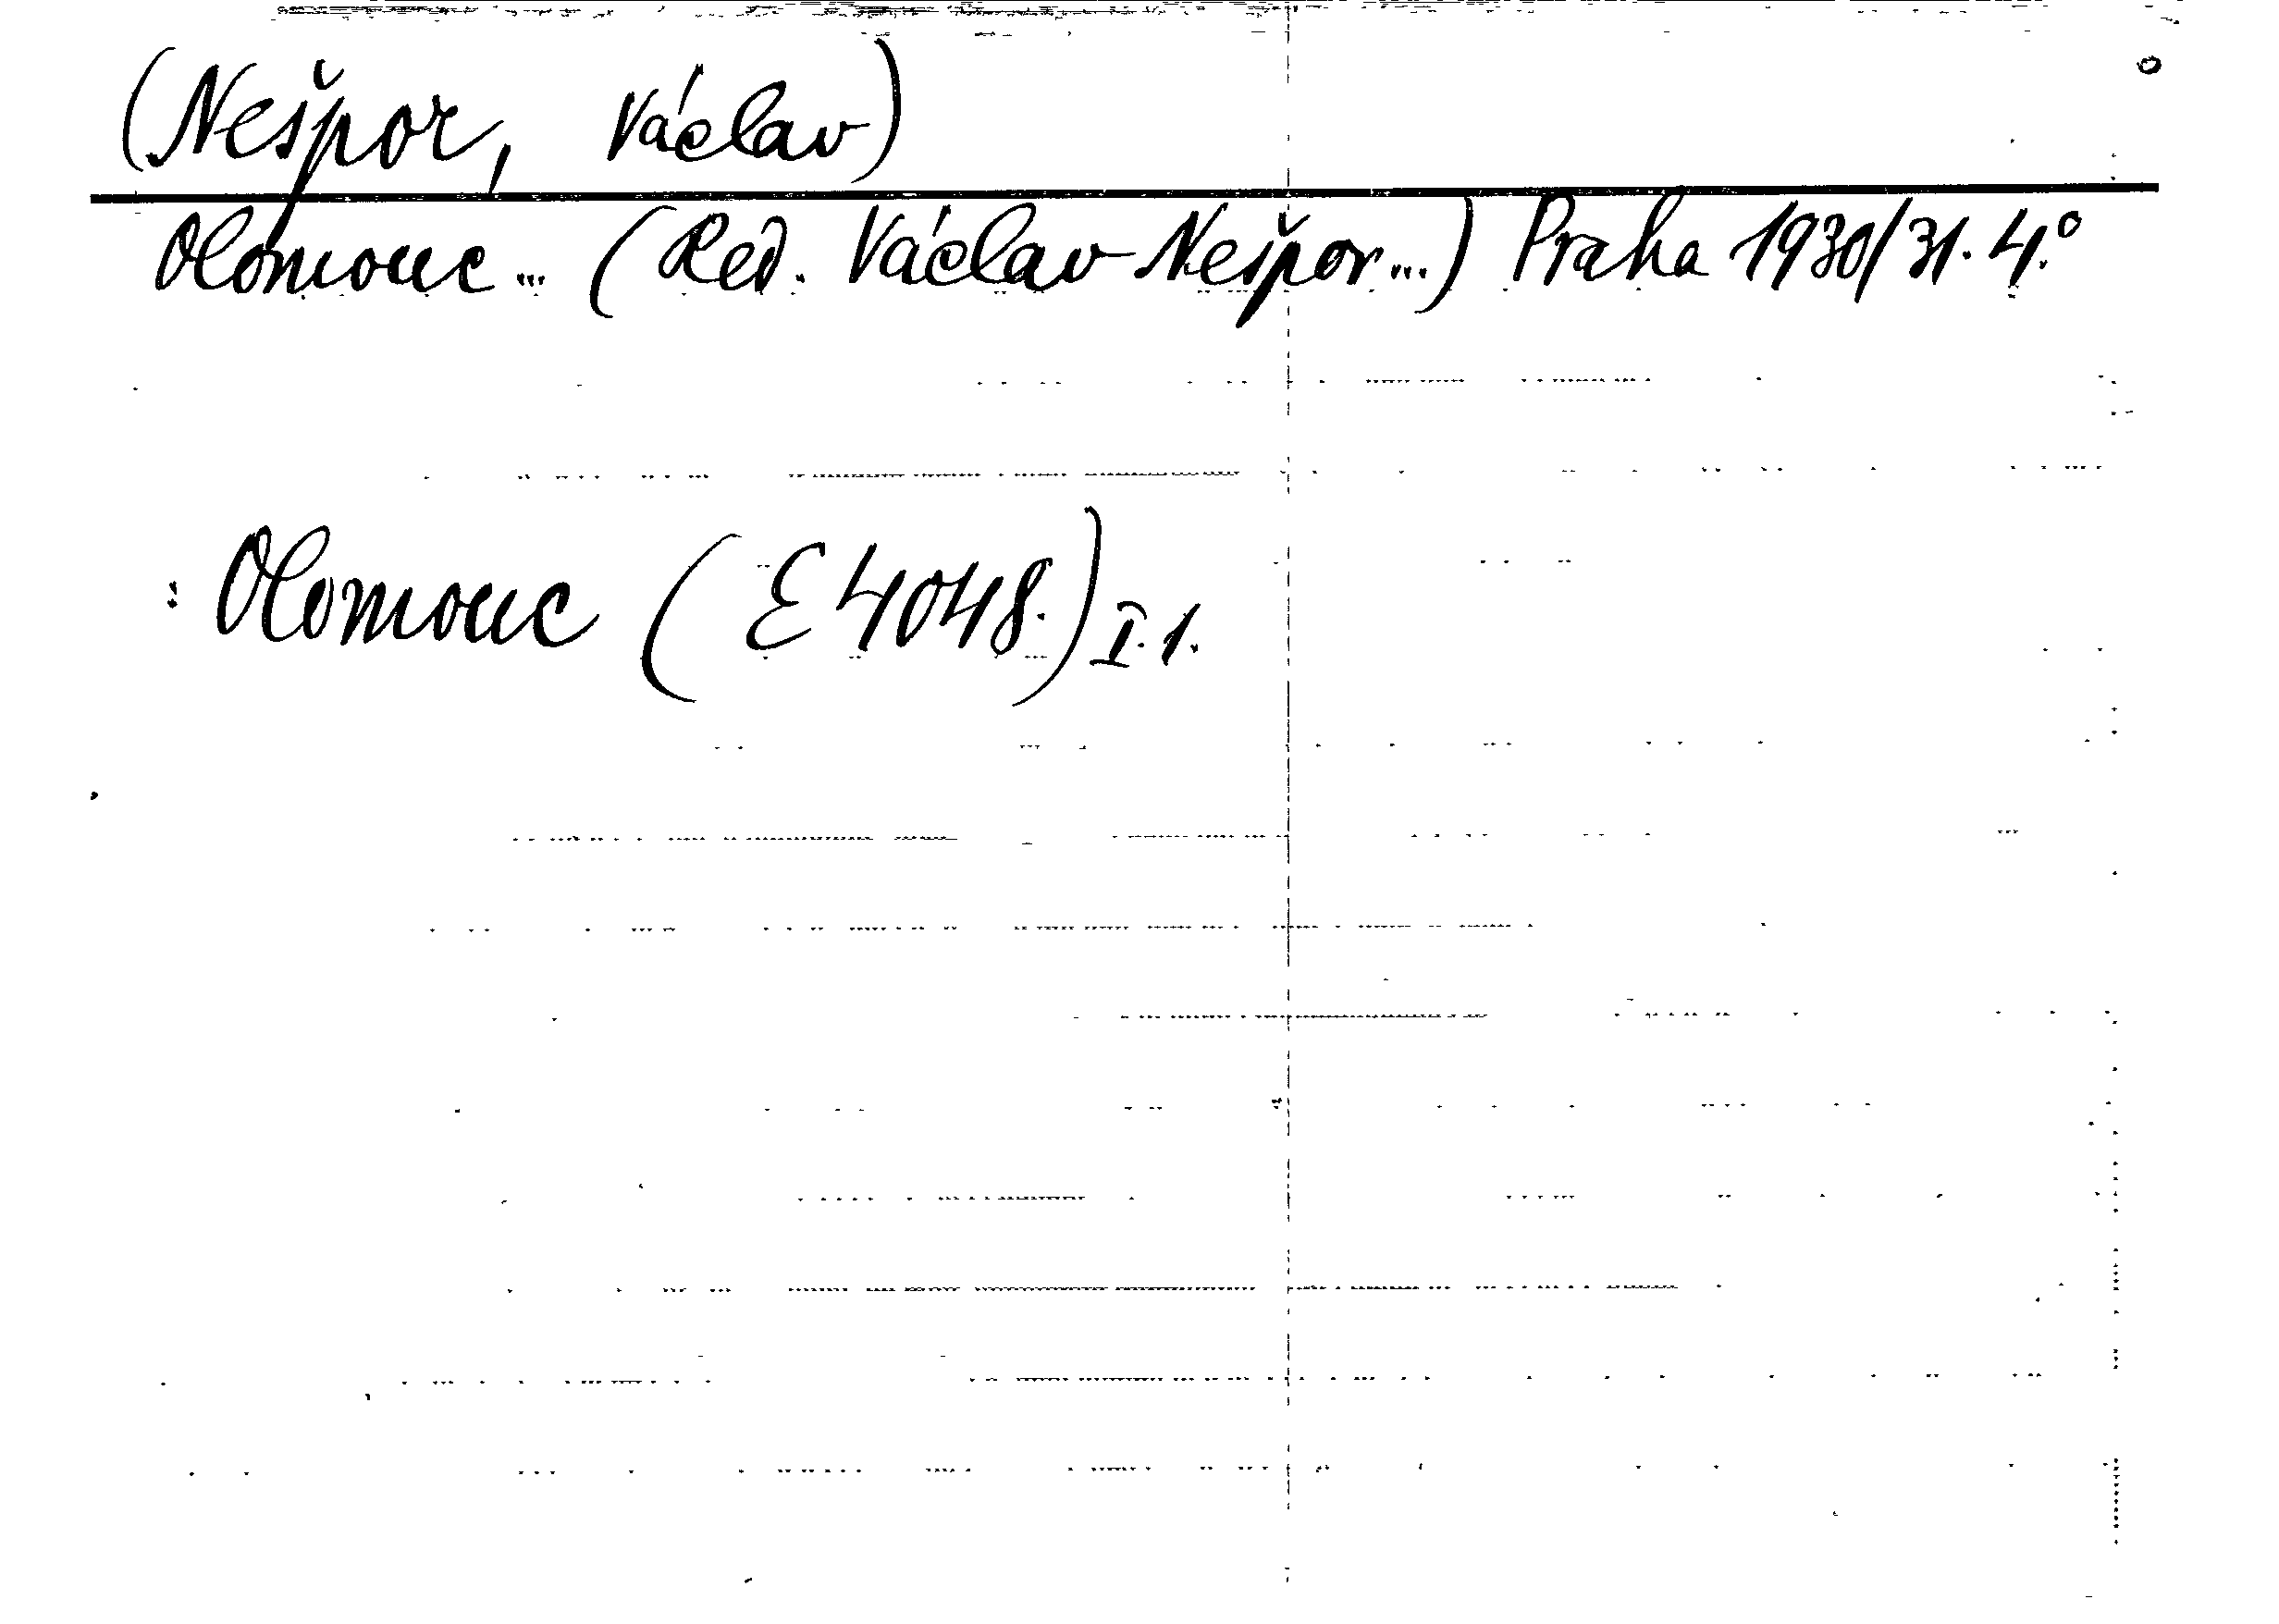 (Nešpor, Václav)
Olomouc... (Red. Václav Nešpor...) Praha 1930/31. 4.°
: Olomouc (E 4048.) I. 1.